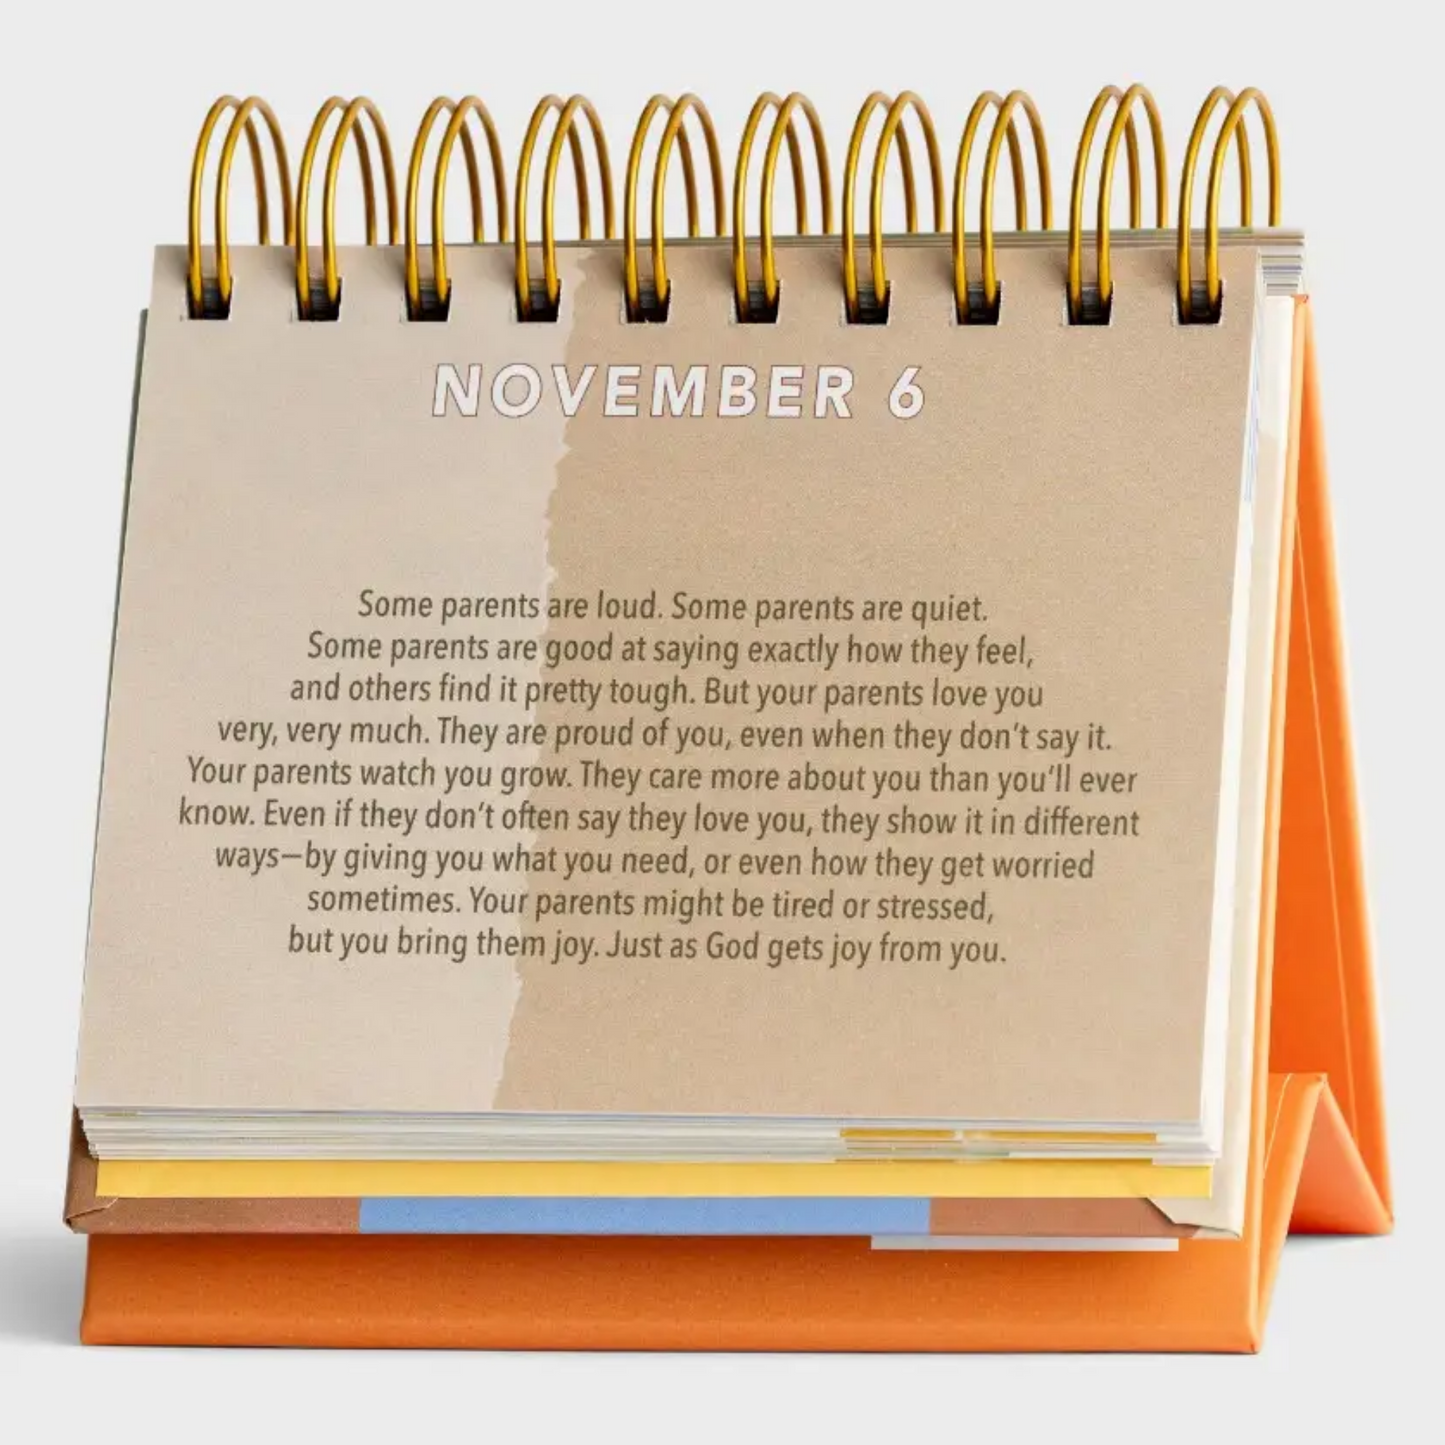 NOVEMBER 6
Some parents are loud. Some parents are quiet.
Some parents are good at saying exactly how they feel,
and others find it pretty tough. But your parents love you
very, very much. They are proud of you, even when they don't say it.
Your parents watch you grow. They care more about you than you'll ever
know. Even if they don't often say they love you, they show it in different
ways—by giving you what you need, or even how they get worried
sometimes. Your parents might be tired or stressed,
but you bring them joy. Just as God gets joy from you.